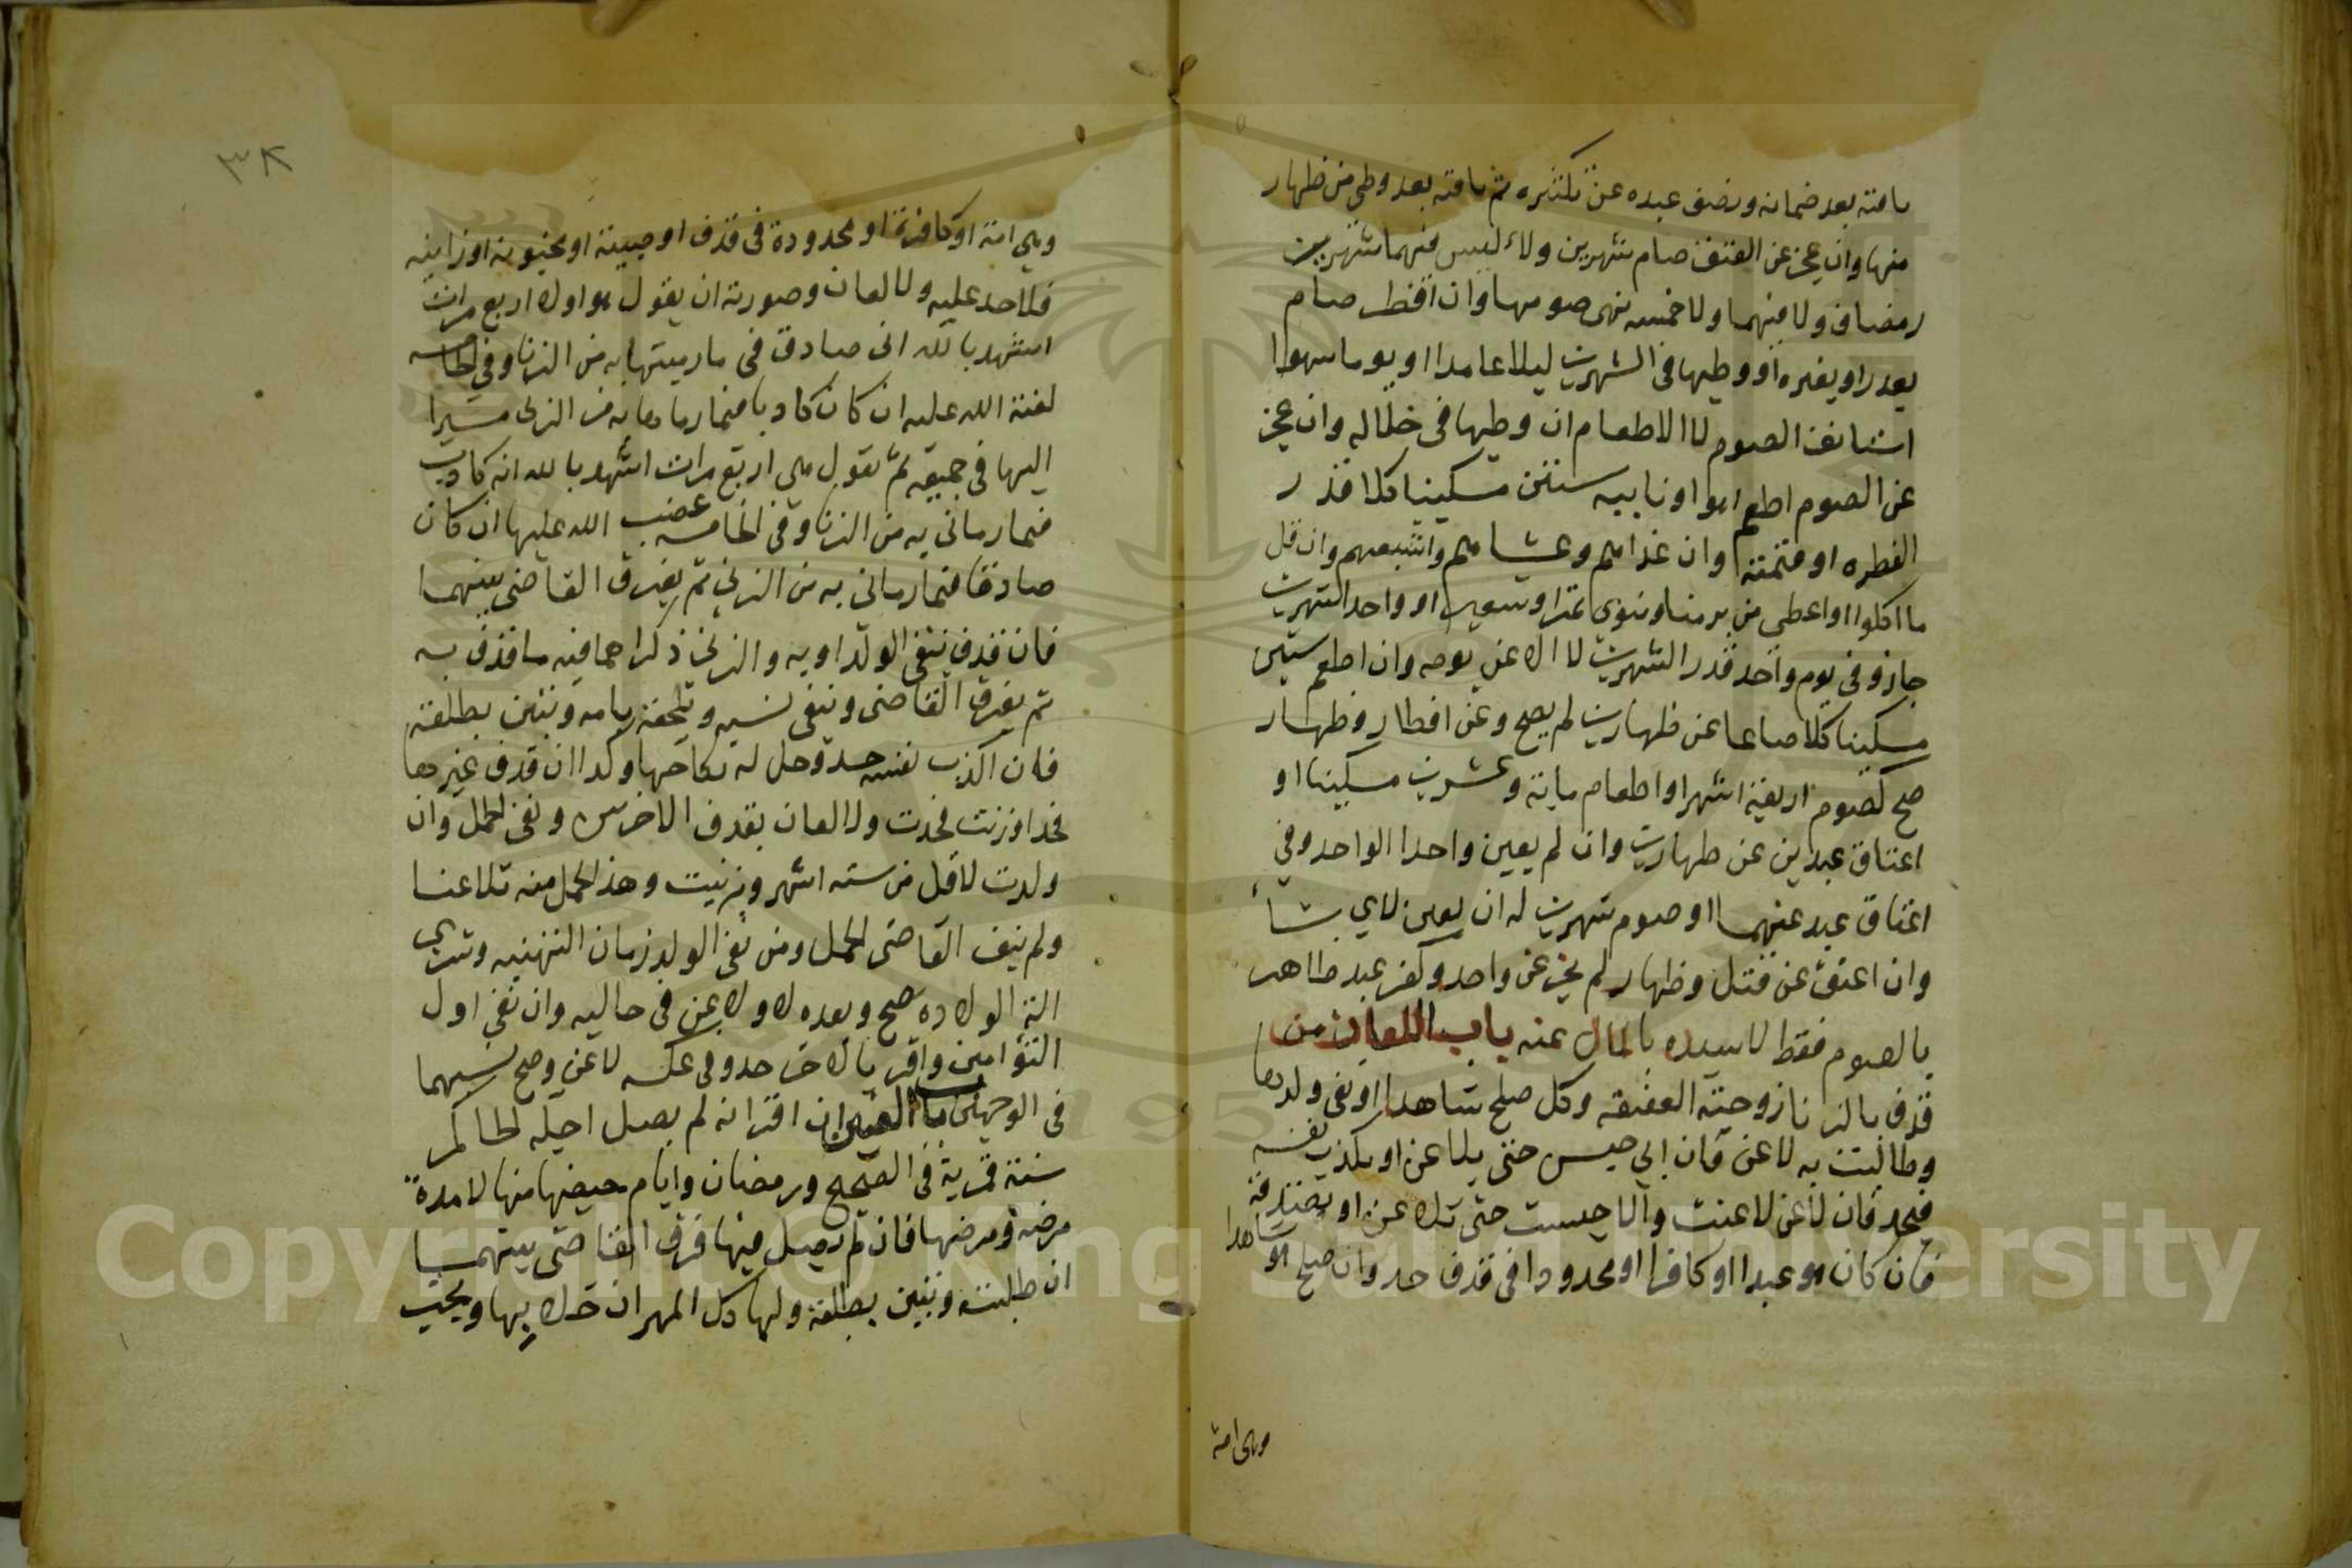 باقيه بعد ضمانه ونصف عبده عن تكفيره ثم باقيه بعد وطي من ظهار
منها وان عجز عن العتق صام شهرين ولاء ليس فيهما شهر
رمضان ولا فيهما ولا خمسة نهى صومها وان افطر صام
بعذر او بغيره او وطيها في الشهرين ليلا عامدا او يوما سهوا
استانف الصوم لا الاطعام ان وطيها في خلاله وان عجز
عن الصوم اطعم هو او نايبه ستين مسكينا كلا قدر
الفطره او قيمته وان غداهم وعشاهم واشبعهم وان قل
ما اكلوا او اعطى من بر منا ومنوى تمرا وشعير او واحد الشهرين
جاز وفي يوم واحد قدر الشهرين لا الا عن يومه وان اطعم ستين
مسكينا كلا صاعا عن ظهارين لم يصح وعن افطار وظهار
صح كصوم اربعة اشهر او اطعام ماية وعشرين مسكينا او
اعتاق عبدين عن ظهارين وان لم يعين واحدا الواحد وفي
اعتاق عبد عنهما او صوم شهرين له ان يعين لاي شاء
وان اعتق عن قتل وظهار لم يجز عن واحد وكفر عبد ظاهر
بالصوم فقط لا سيده بالمال عنه باب اللعان من
قذف بالزنا زوجته العفيفه وكل صلح شاهدا او نفى ولدها
وطالبت به لاعن فان ابي حبس حتى يلاعن او يكذب نفسه
فيحد فان لاعن لاعنت والا حبست حتى تلاعن او تصدقه
فان كان هو عبدا او كافرا او محدودا في قذف حد وان صلح هو شاهدا
وهي امة
٣٨
وهي امة او كافرة او محدودة في قذف او صبية او مجنونة او زانيه
فلا حد عليه ولا لعان وصورته ان يقول هو اولا اربع مرات
اشهد بالله اني صادق في ما رميتها به من الزنا وفي الخامسه
لعنة الله عليه ان كان كاذبا فيما رماها به من الزنى مشيرا
اليها في جميعه ثم تقول هي اربع مرات اشهد بالله انه كاذب
فيما رماني به من الزنا وفي الخامسه غضب الله عليها ان كان
صادقا فيما رماني به من الزنى ثم يفرق القاضي بينهما
فان قذف بنفي الولد او به والزنى ذكرا هما فيه ما قذف به
ثم يفرق القاضي وينفي نسبه ويلحقه بامه وتبين بطلقة
فان اكذب نفسه حد وحل له نكاحها وكذا ان قذف غيرها
فحد او زنت فحدت ولا لعان بقذف الاخرس ونفي الحمل وان
ولدت لاقل من سته اشهر وبزنيت وهذا الحمل منه تلاعنا
ولم ينف القاضي الحمل ومن نفى الولد زمان التهنيه وشرى
الة الولاده صح وبعده لا ولاعن في حاليه وان نفى اول
التؤامين واقر بالاخر حد وفي عكسه لاعن وصح نسبهما
في الوجهين باب العنين ان اقر انه لم يصل اجله الحاكم
سنة قمرية في الصحيح ورمضان وايام حيضها منها لا مدة
مرضه ومرضها فان لم يصل فيها فرق القاضي بينهما
ان طلبته وتبين بطلقة ولها كل المهر ان خلا بها ويجب